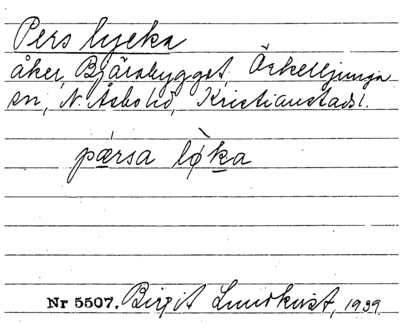 Pers lycka
åker, Bjärabygget, Örkelljunga
sn, N. Åsbo hd, Kristianstads l.
pǽrsa lø̀ka
Nr 5507. Birgit Lundkvist, 1939.